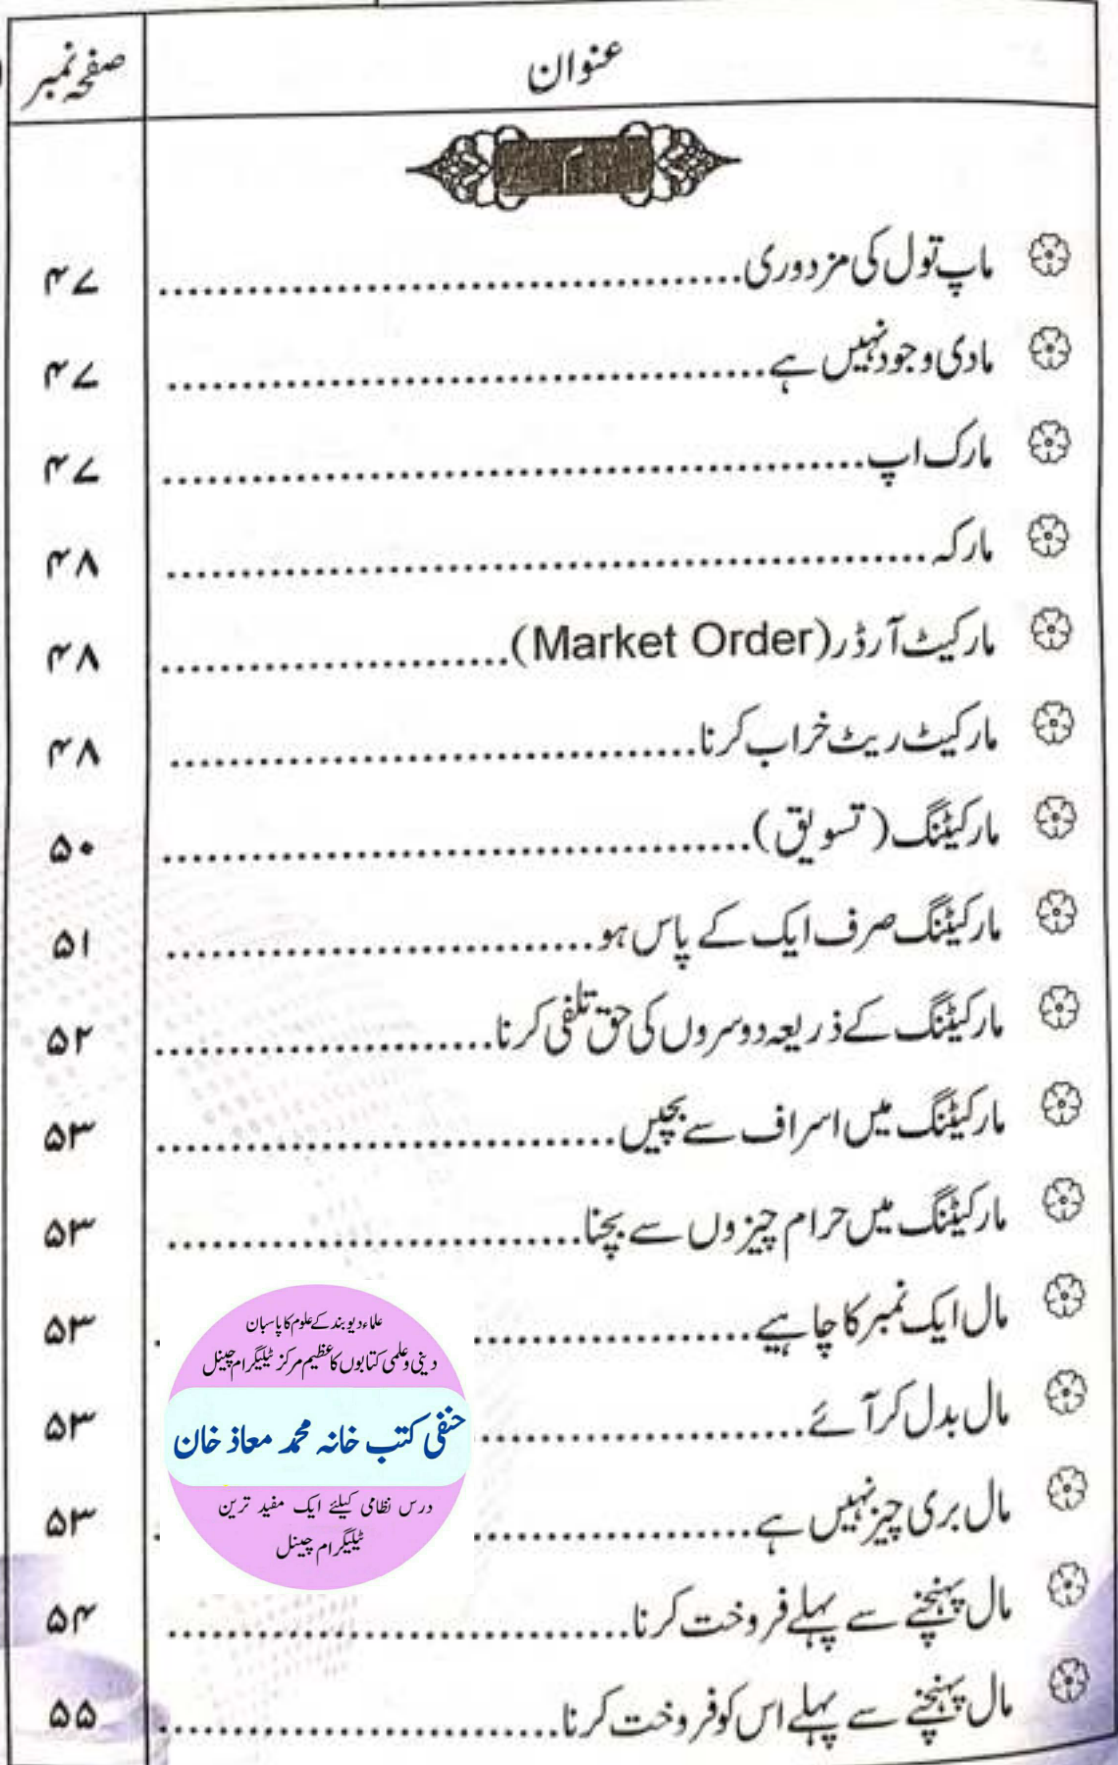 عنوان صفحہ نمبر
م
ماپ تول کی مزدوری ........ ۴۷
مادی وجود نہیں ہے ........ ۴۷
مارک اپ ........ ۴۷
مارکہ ........ ۴۸
مارکیٹ آرڈر (Market Order) ........ ۴۸
مارکیٹ ریٹ خراب کرنا ........ ۴۸
مارکیٹنگ (تسویق) ........ ۵۰
مارکیٹنگ صرف ایک کے پاس ہو ........ ۵۱
مارکیٹنگ کے ذریعہ دوسروں کی حق تلفی کرنا ........ ۵۲
مارکیٹنگ میں اسراف سے بچیں ........ ۵۳
مارکیٹنگ میں حرام چیزوں سے بچنا ........ ۵۳
مال ایک نمبر کا چاہیے ........ ۵۳
مال بدل کر آئے ........ ۵۳
مال بری چیز نہیں ہے ........ ۵۳
مال پہنچنے سے پہلے فروخت کرنا ........ ۵۴
مال پہنچنے سے پہلے اس کو فروخت کرنا ........ ۵۵
علماء دیوبند کے علوم کا پاسبان
دینی و علمی کتابوں کا عظیم مرکز ٹیلیگرام چینل
حنفی کتب خانہ محمد معاذ خان
درس نظامی کیلئے ایک مفید ترین
ٹیلیگرام چینل